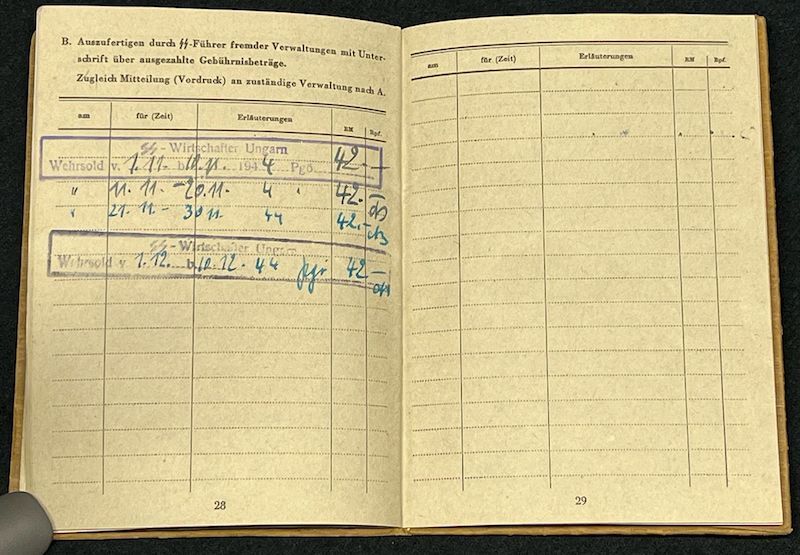 B. Auszufertigen durch ᛋᛋ-Führer fremder Verwaltungen mit Unter-
schrift über ausgezahlte Gebührnisbeträge.
Zugleich Mitteilung (Vordruck) an zuständige Verwaltung nach A.
am für (Zeit) Erläuterungen RM Rpf.
ᛋᛋ - Wirtschafter Ungarn
Wehrsold v. 1.11. b. 10.11. 194 4 Pgö. 42.-
" 11.11. - 20.11. 4 42.-
" 21.11. - 30.11. 44 42.-
ᛋᛋ - Wirtschafter Ungarn
Wehrsold v. 1.12. b. 10.12. 44 42.-
28
am für (Zeit) Erläuterungen RM Rpf.
29